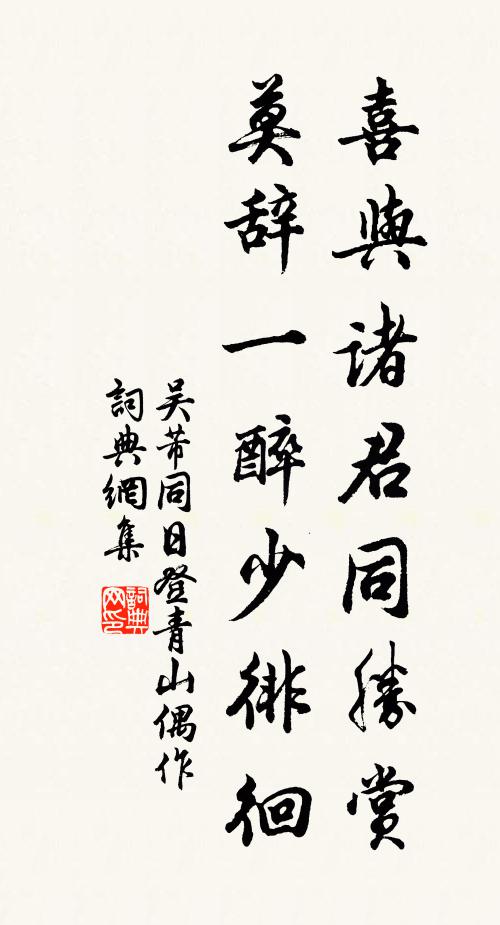 喜與諸君同勝賞
莫辞一醉少徘徊
吴芾同日登青山偶作
詞典網集
詞典网印